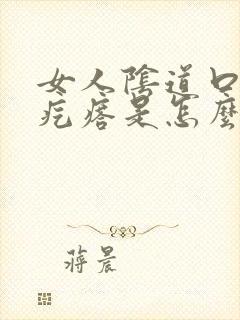 女人陰道口
疙瘩是怎麼
蔣晨